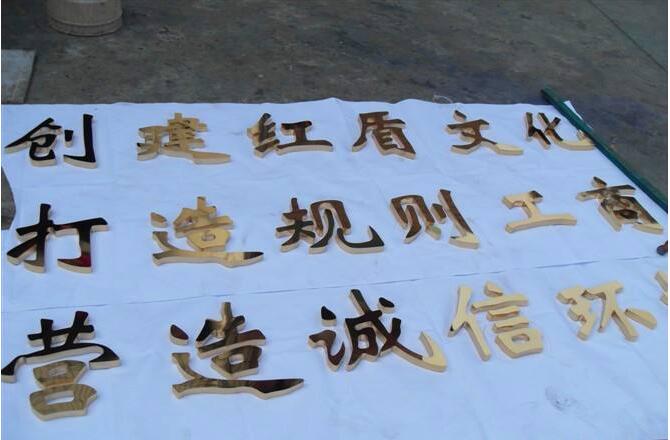 创建红盾文化
打造规则工商
营造诚信环